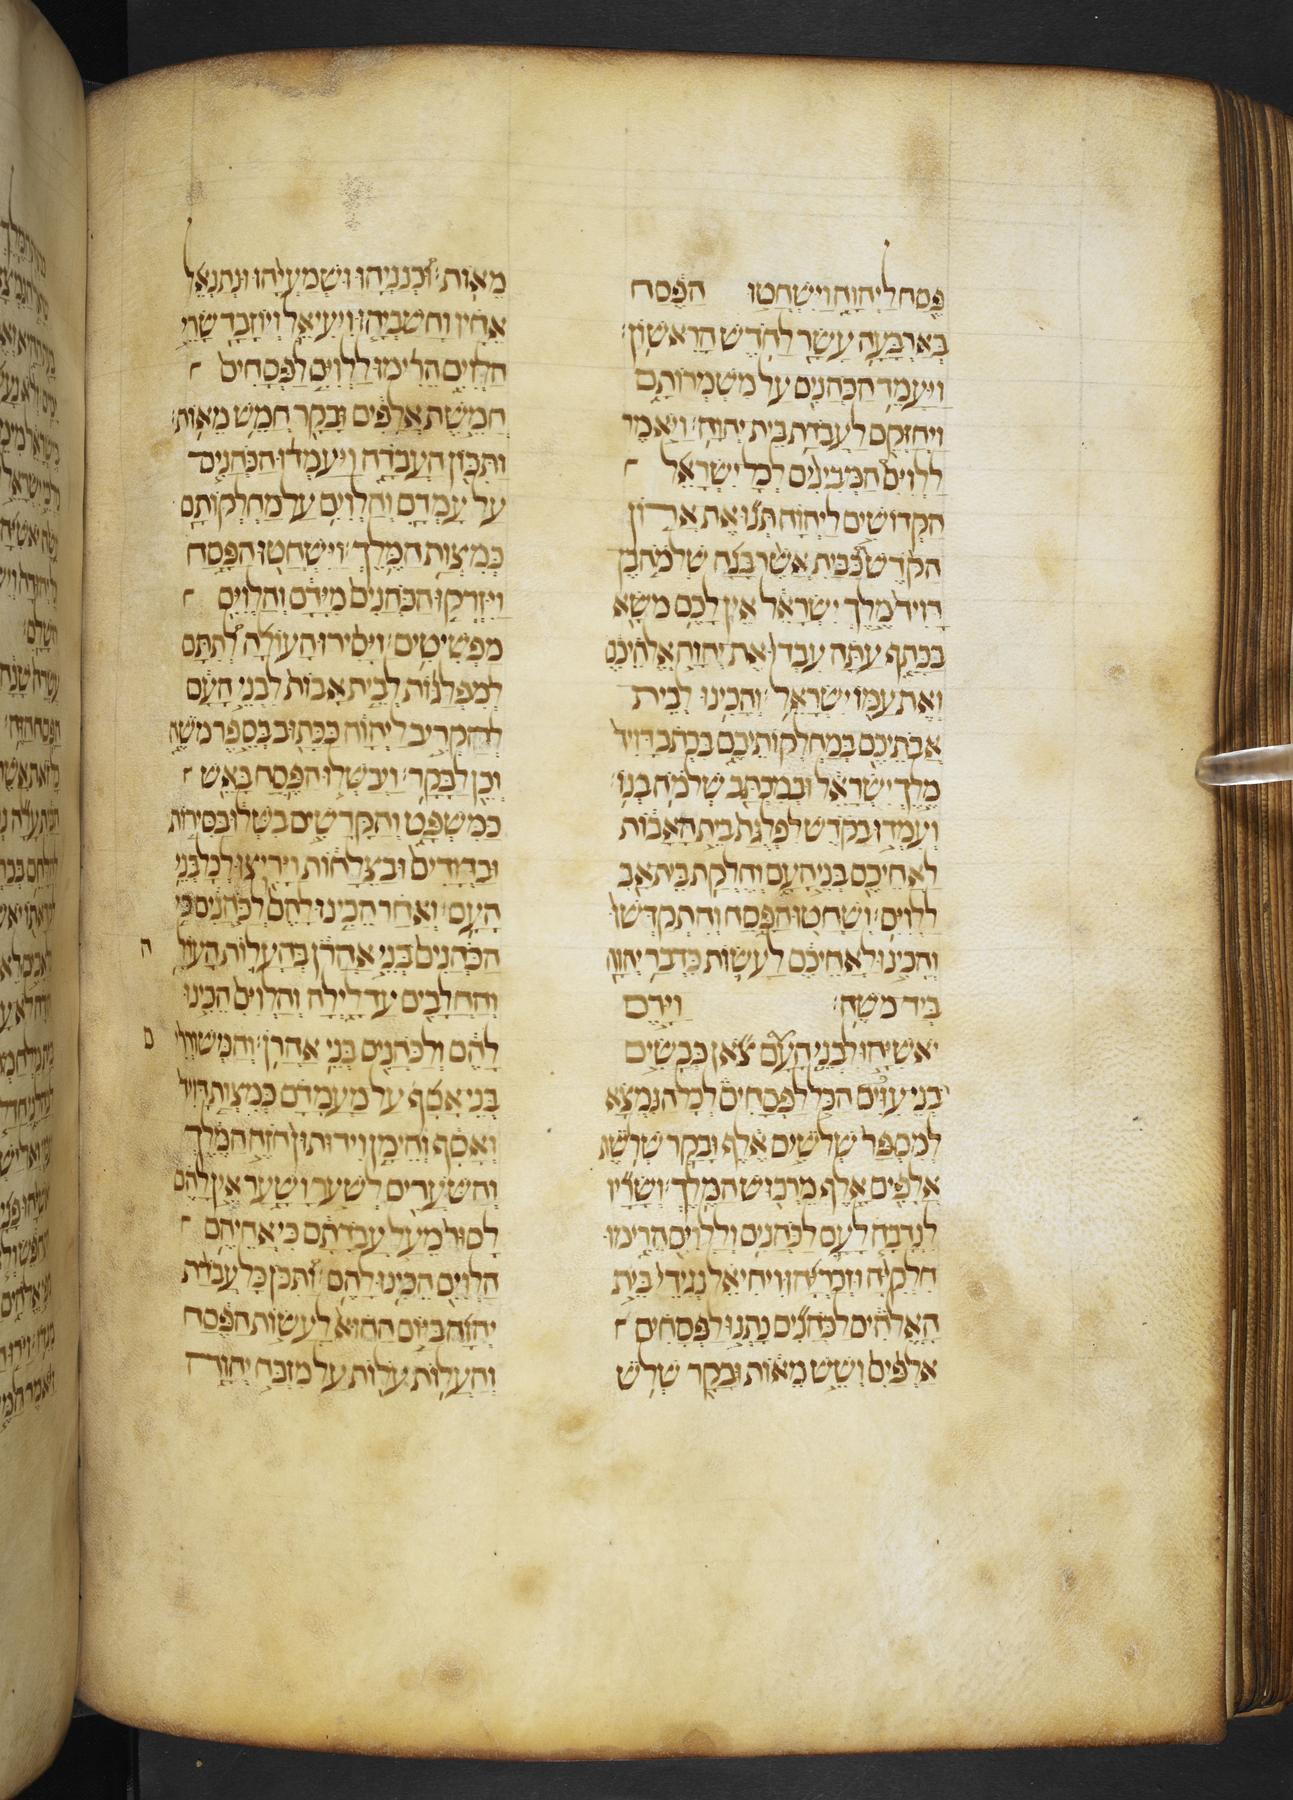 פסח ליהוה וישחטו הפסח
בארבעה עשר לחדש הראשון׃
ויעמד הכהנים על משמרותם
ויחזקם לעבדת בית יהוה׃ ויאמר
ללוים המבינים לכל ישראל
הקדושים ליהוה תנו את ארון
הקדש בבית אשר בנה שלמה בן
דויד מלך ישראל אין לכם משא
בכתף עתה עבדו את יהוה אלהיכם
ואת עמו ישראל׃ והכינו לבית
אבתיכם במחלקותיכם בכתב דויד
מלך ישראל ובמכתב שלמה בנו׃
ועמדו בקדש לפלגת בית האבות
לאחיכם בני העם וחלקת בית אב
ללוים׃ ושחטו הפסח והתקדשו
והכינו לאחיכם לעשות כדבר יהוה
ביד משה׃ וירם
יאשיהו לבני העם צאן כבשים
ובני עזים הכל לפסחים לכל הנמצא
למספר שלשים אלף ובקר שלשת
אלפים אלה מרכוש המלך׃ ושריו
לנדבה לעם לכהנים וללוים הרימו
חלקיה וזכריהו ויחיאל נגידי בית
האלהים לכהנים נתנו לפסחים
אלפים ושש מאות ובקר שלש
מאות׃ וכנניהו ושמעיהו ונתנאל
אחיו וחשביהו ויעיאל ויוזבד שרי
הלוים הרימו ללוים לפסחים
חמשת אלפים ובקר חמש מאות׃
ותכון העבדה ויעמדו הכהנים
על עמדם והלוים על מחלקותם
כמצות המלך׃ וישחטו הפסח
ויזרקו הכהנים מידם והלוים
מפשיטים׃ ויסירו העולה לתתם
למפלגות לבית אבות לבני העם
להקריב ליהוה ככתוב בספר משה
וכן לבקר׃ ויבשלו הפסח באש
כמשפט והקדשים בשלו בסירות
ובדודים ובצלחות ויריצו לכל בני
העם׃ ואחר הכינו להם לכהנים כי
הכהנים בני אהרן בהעלות העול ה
והחלבים עד לילה והלוים הכינו
להם ולכהנים בני אהרן׃ והמשוררי ם
בני אסף על מעמדם כמצות דויד
ואסף והימן וידותון חוזה המלך
והשערים לשער ושער אין להם
לסור מעל עבדתם כי אחיהם
הלוים הכינו להם׃ ותכן כל עבדת
יהוה ביום ההוא לעשות הפסח
והעלות עלות על מזבח יהוה